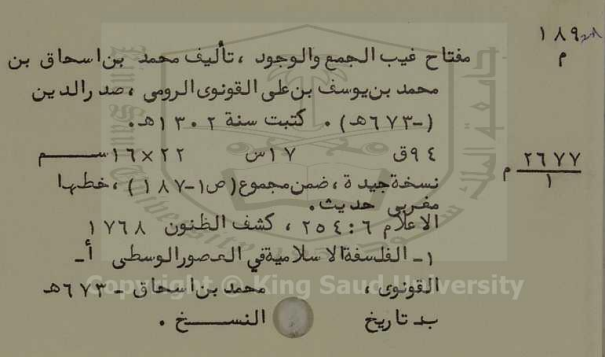 ١٨٩
م
مفتاح غيب الجمع والوجود ، تأليف محمد بن اسحاق بن
محمد بن يوسف بن على القونوى الرومى ، صدر الدين
(-٦٧٣هـ) . كتبت سنة ١٣٠٢هـ.
٩٤ق ١٧س ٢٢×١٦سم
نسخة جيدة ، ضمن مجموع (ص١-١٨٧) ، خطها
مغربى حديث.
٢٦٧٧
م ١
الاعلام ٦ : ٢٥٤ ، كشف الظنون ١٧٦٨
١- الفلسفة الاسلامية في العصور الوسطى أ-
القونوى ، محمد بن اسحاق - ٦٧٣هـ
ب- تاريخ النسخ .
Copyright © King Saud University